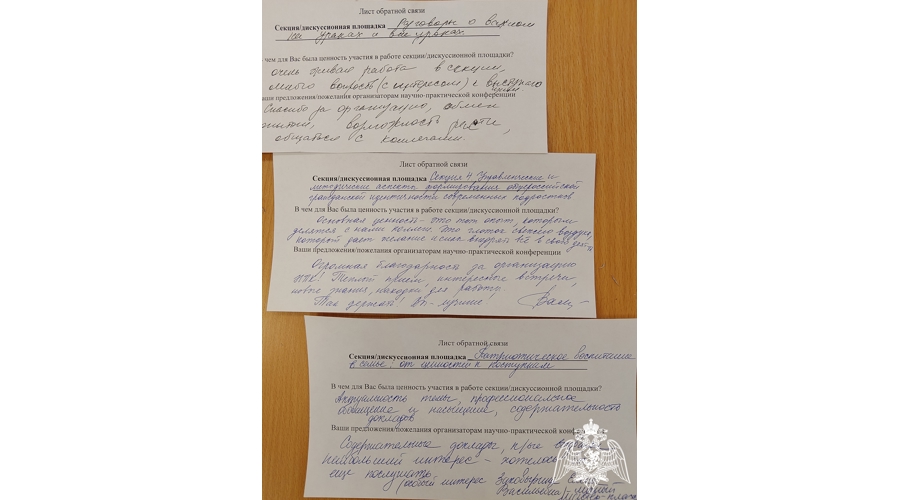 Лист обратной связи
Секция/дискуссионная площадка Разговоры о важном
на уроках и вне уроках
чем для Вас была ценность участия в работе секции/дискуссионной площадки?
очень живая работа в секции,
много вопросов (с интересом) к выступаю
щим
аши предложения/пожелания организаторам научно-практической конференции
Спасибо за организацию, обмен
опытом, возможность расти,
общаться с коллегами.
Лист обратной связи
Секция/дискуссионная площадка Секция 4 Управленческие и
методические аспекты формирования общероссийской
гражданской идентичности современных подростков
В чем для Вас была ценность участия в работе секции/дискуссионной площадки?
Основная ценность - это тот опыт, которым
делятся с нами коллеги. Это глоток свежего воздуха,
который дает желание и силы внедрять всё в свою
Ваши предложения/пожелания организаторам научно-практической конференции
Огромная благодарность за организацию
НПК! Теплый прием, интересные встречи,
новые знания, находки для работы.
Так держать! Вы - лучшие!
Лист обратной связи
Секция/дискуссионная площадка Патриотическое воспитание
в семье: от ценностей к поступкам
В чем для Вас была ценность участия в работе секции/дискуссионной площадки?
Актуальность темы, профессиональное
обогащение и насыщение, содержательность
докладов
Ваши предложения/пожелания организаторам научно-практической конф
Содержательные доклады,
наибольший интерес - хотелось
еще послушать.
интерес
Васильевна